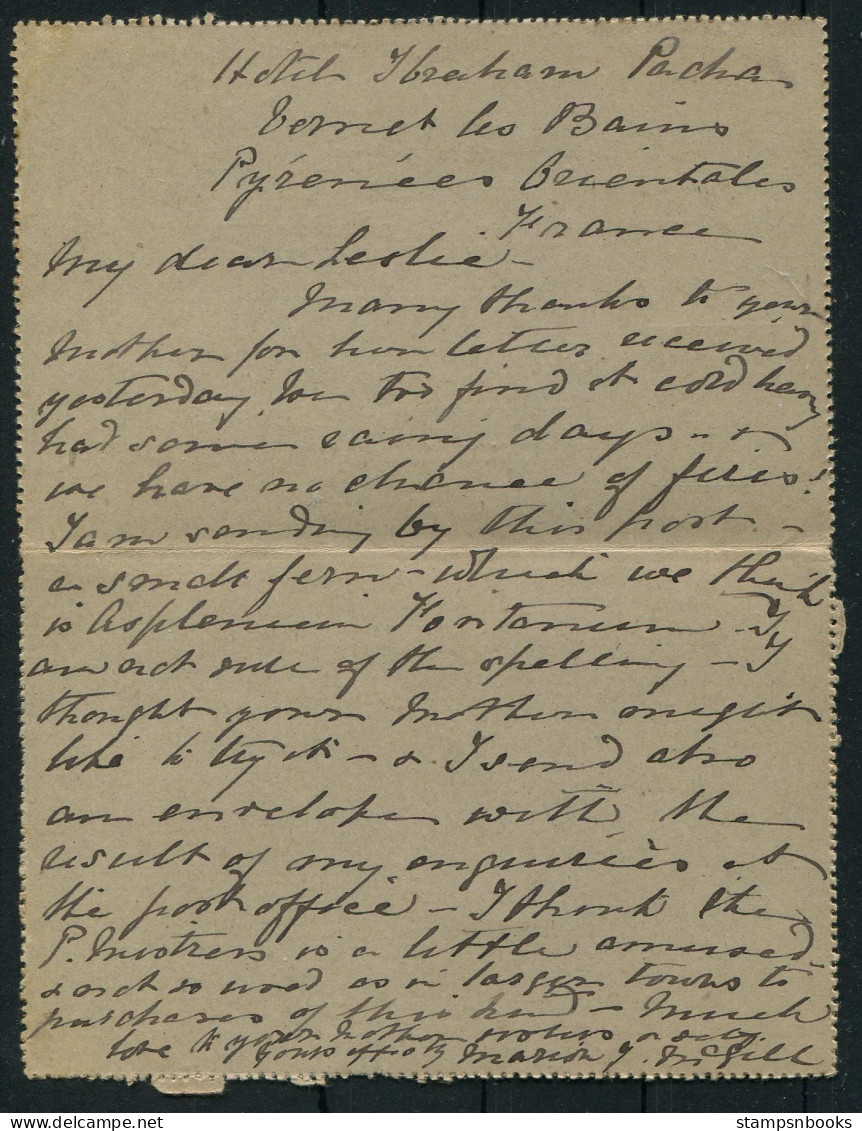 Hotel Ibraham Pacha
Vernet les Bains
Pyrénées Orientales
France
My dear Leslie -
Many thanks to your
Mother for her letter received
yesterday. We too find it cold having
had some rainy days - &
we have no chance of fires!
I am sending by this post -
a small fern - which we think
is Asplenium Fontanum - I
am not sure of the spelling - I
thought your Mother might
like to try it - & I send also
an envelope with the
result of my enquiries at
the post office - I think the
P. Mistress is a little amused
& not so used as in larger towns to
purchases of this kind - Much
love to your Mother
Yours affctly Marion J. McGill
stampsnbooks